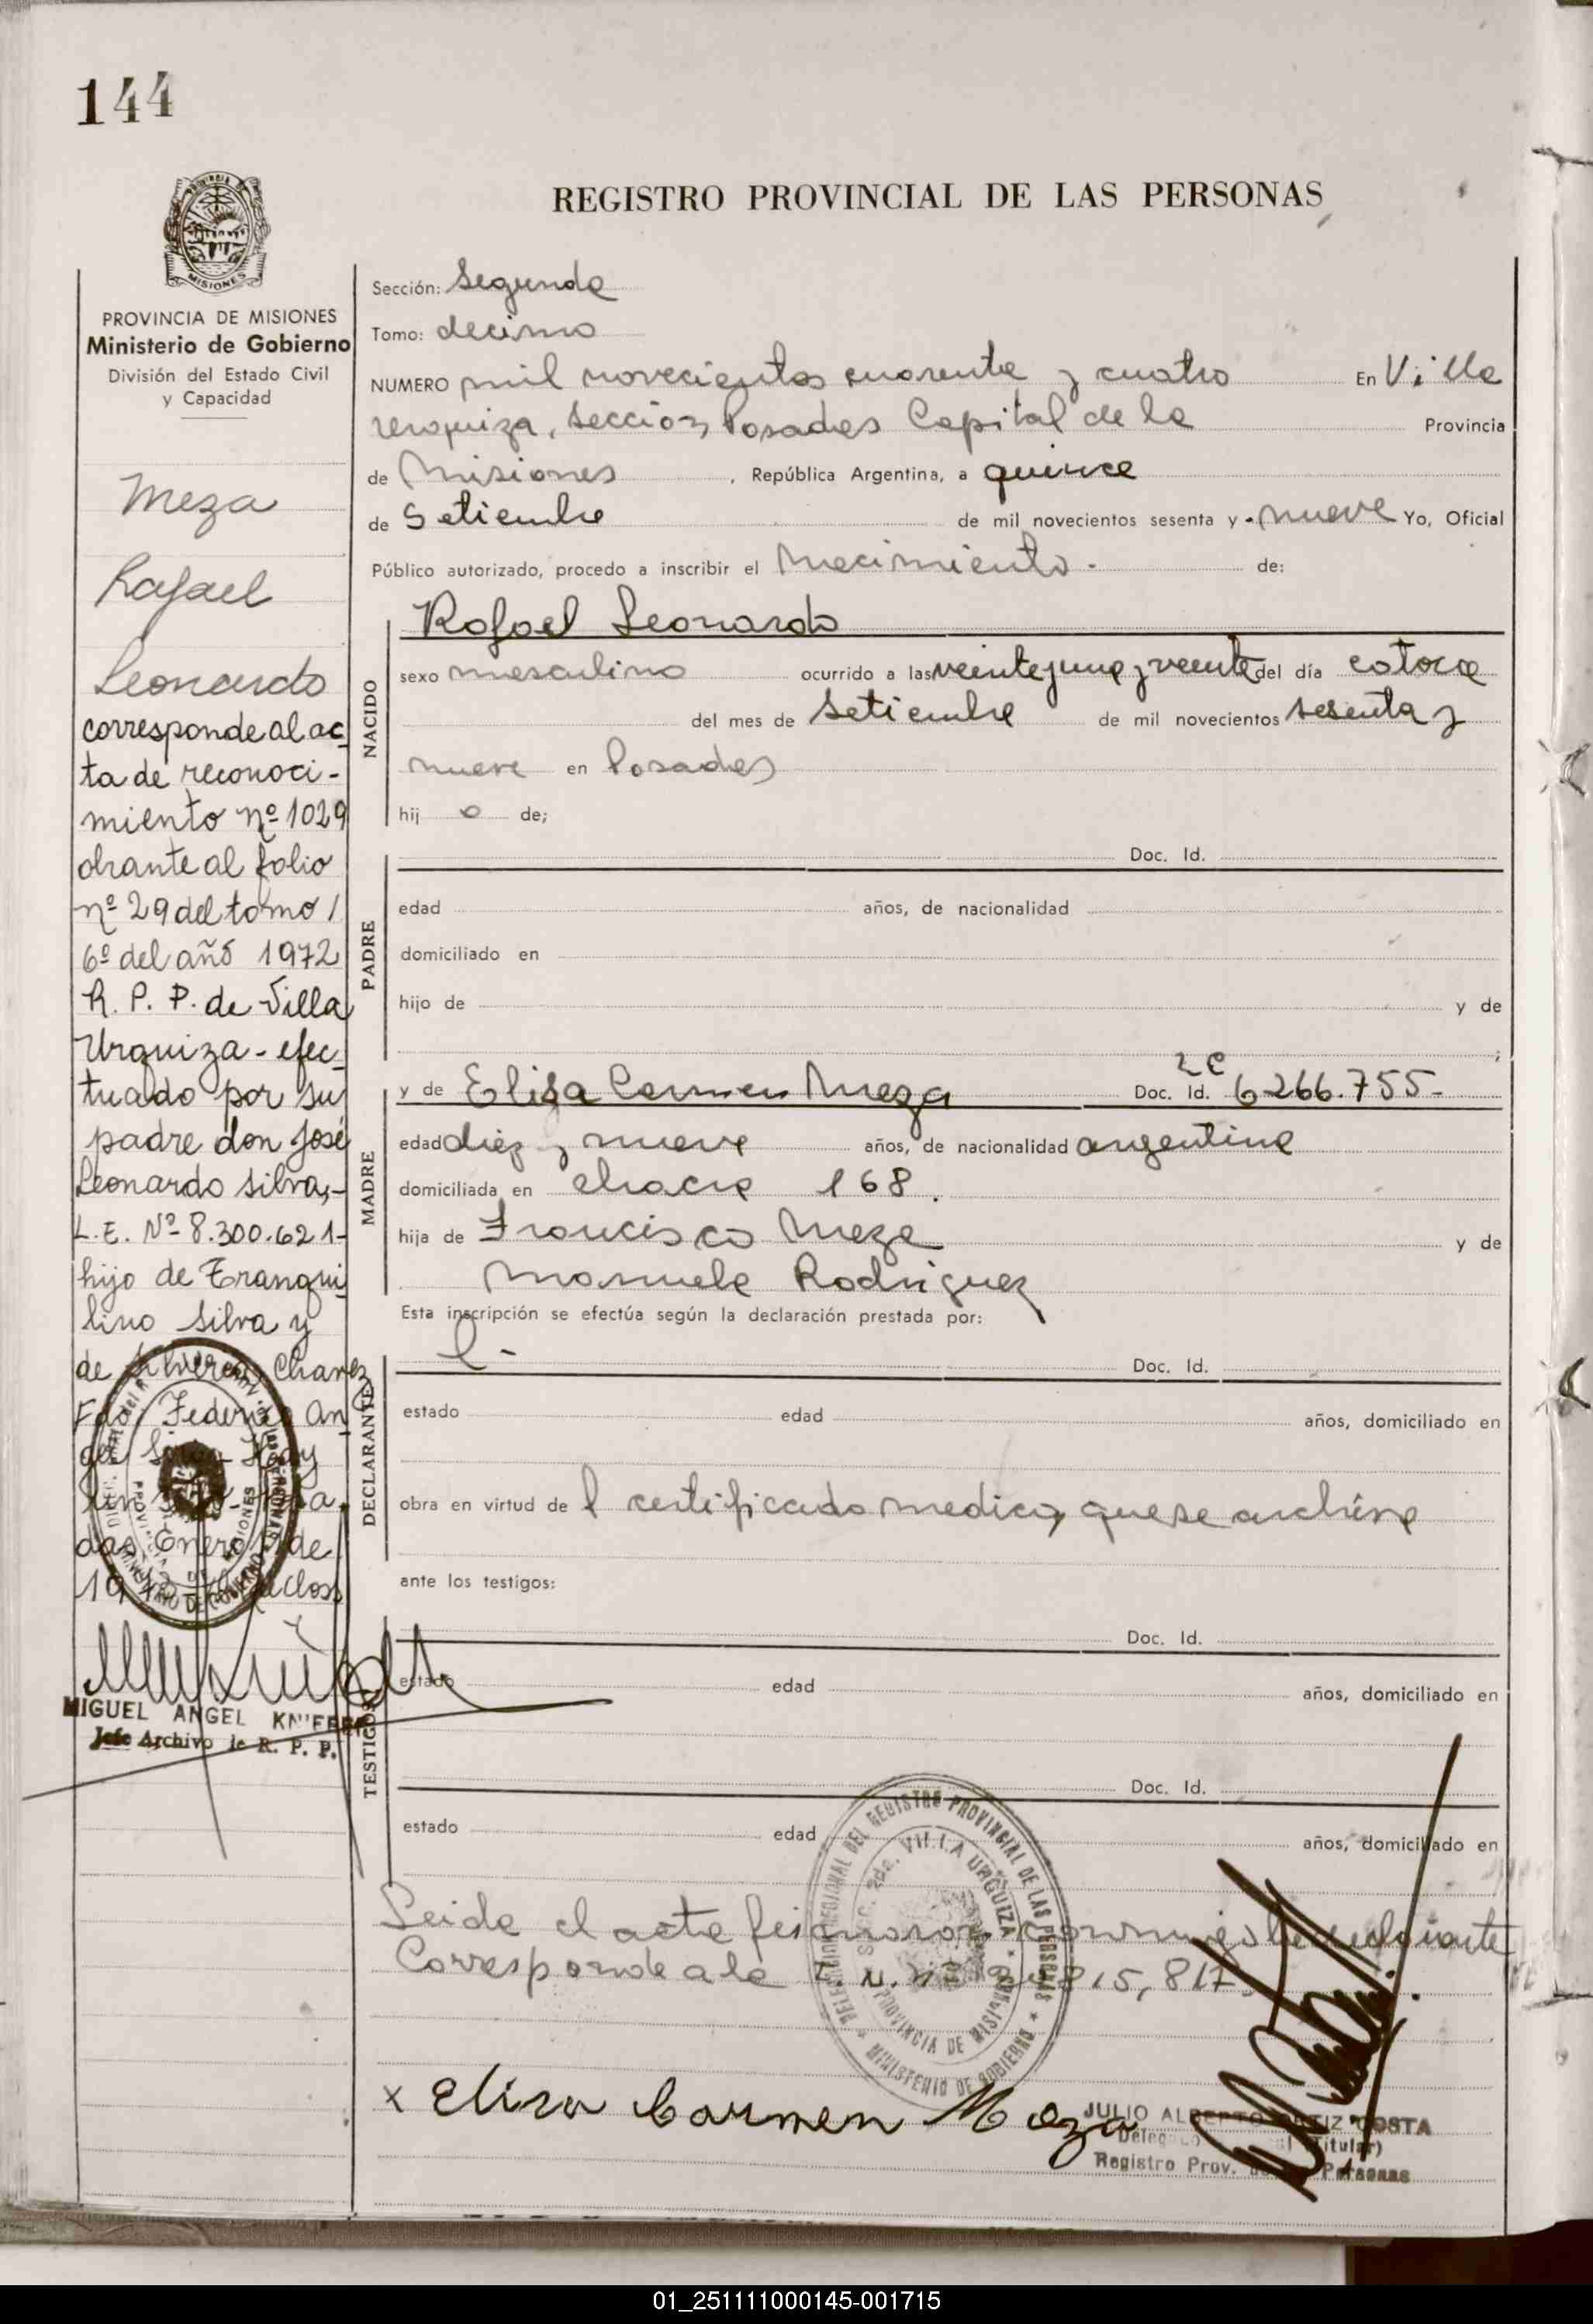 144
REGISTRO PROVINCIAL DE LAS PERSONAS
MISIONES
PROVINCIA DE MISIONES
Ministerio de Gobierno
División del Estado Civil
y Capacidad
Meza
Rafael
Leonardo
corresponde al ac-
ta de reconoci-
miento nº 1029
obrante al folio
nº 29 del tomo 1
6º del año 1972
R. P. P. de Villa
Urquiza - efec-
tuado por su
padre don José
Leonardo Silva,-
L.E. Nº 8.300.621-
hijo de Tranqui-
lino Silva y
de Chavez
Fdo. Federico An
gel
das, Enero de
19
MIGUEL ANGEL
Jefe Archivo de R. P. P.
Sección: Segunda
Tomo: decimo
NUMERO mil novecientos cuarenta y cuatro En Villa
Urquiza, Sección Posadas Capital de la Provincia
de Misiones, República Argentina, a quince
de Setiembre de mil novecientos sesenta y - nueve Yo, Oficial
Público autorizado, procedo a inscribir el Nacimiento.- de:
NACIDO
Rafael Leonardo
sexo masculino ocurrido a las veinte y una y veinte del día catorce
del mes de Setiembre de mil novecientos sesenta y
nueve en Posadas
hij o de;
PADRE
Doc. Id.
edad años, de nacionalidad
domiciliado en
hijo de y de
;
MADRE
y de Elisa Carmen Meza Doc. Id. LC 6266.755-
edad diez y nueve años, de nacionalidad argentina
domiciliada en chacra 168.
hija de Francisco Meza y de
Manuela Rodriguez
Esta inscripción se efectúa según la declaración prestada por:
DECLARANTE
Doc. Id.
estado edad años, domiciliado en
obra en virtud de l certificado medico, que se archiva
ante los testigos:
TESTIGOS
Doc. Id.
estado edad años, domiciliado en
Doc. Id.
estado edad años, domiciliado en
Leida el acta conmigo la declarante
Corresponde a la 815,817.
DELEGACION REGIONAL DEL REGISTRO PROVINCIAL DE LAS PERSONAS * MINISTERIO DE GOBIERNO *
SEC. 2da. VILLA URQUIZA * PROVINCIA DE MISIONES *
x Elisa Carmen Meza
JULIO ALBERTO ORTIZ COSTA
(Titular)
Registro Prov. de las Personas
01_251111000145-001715